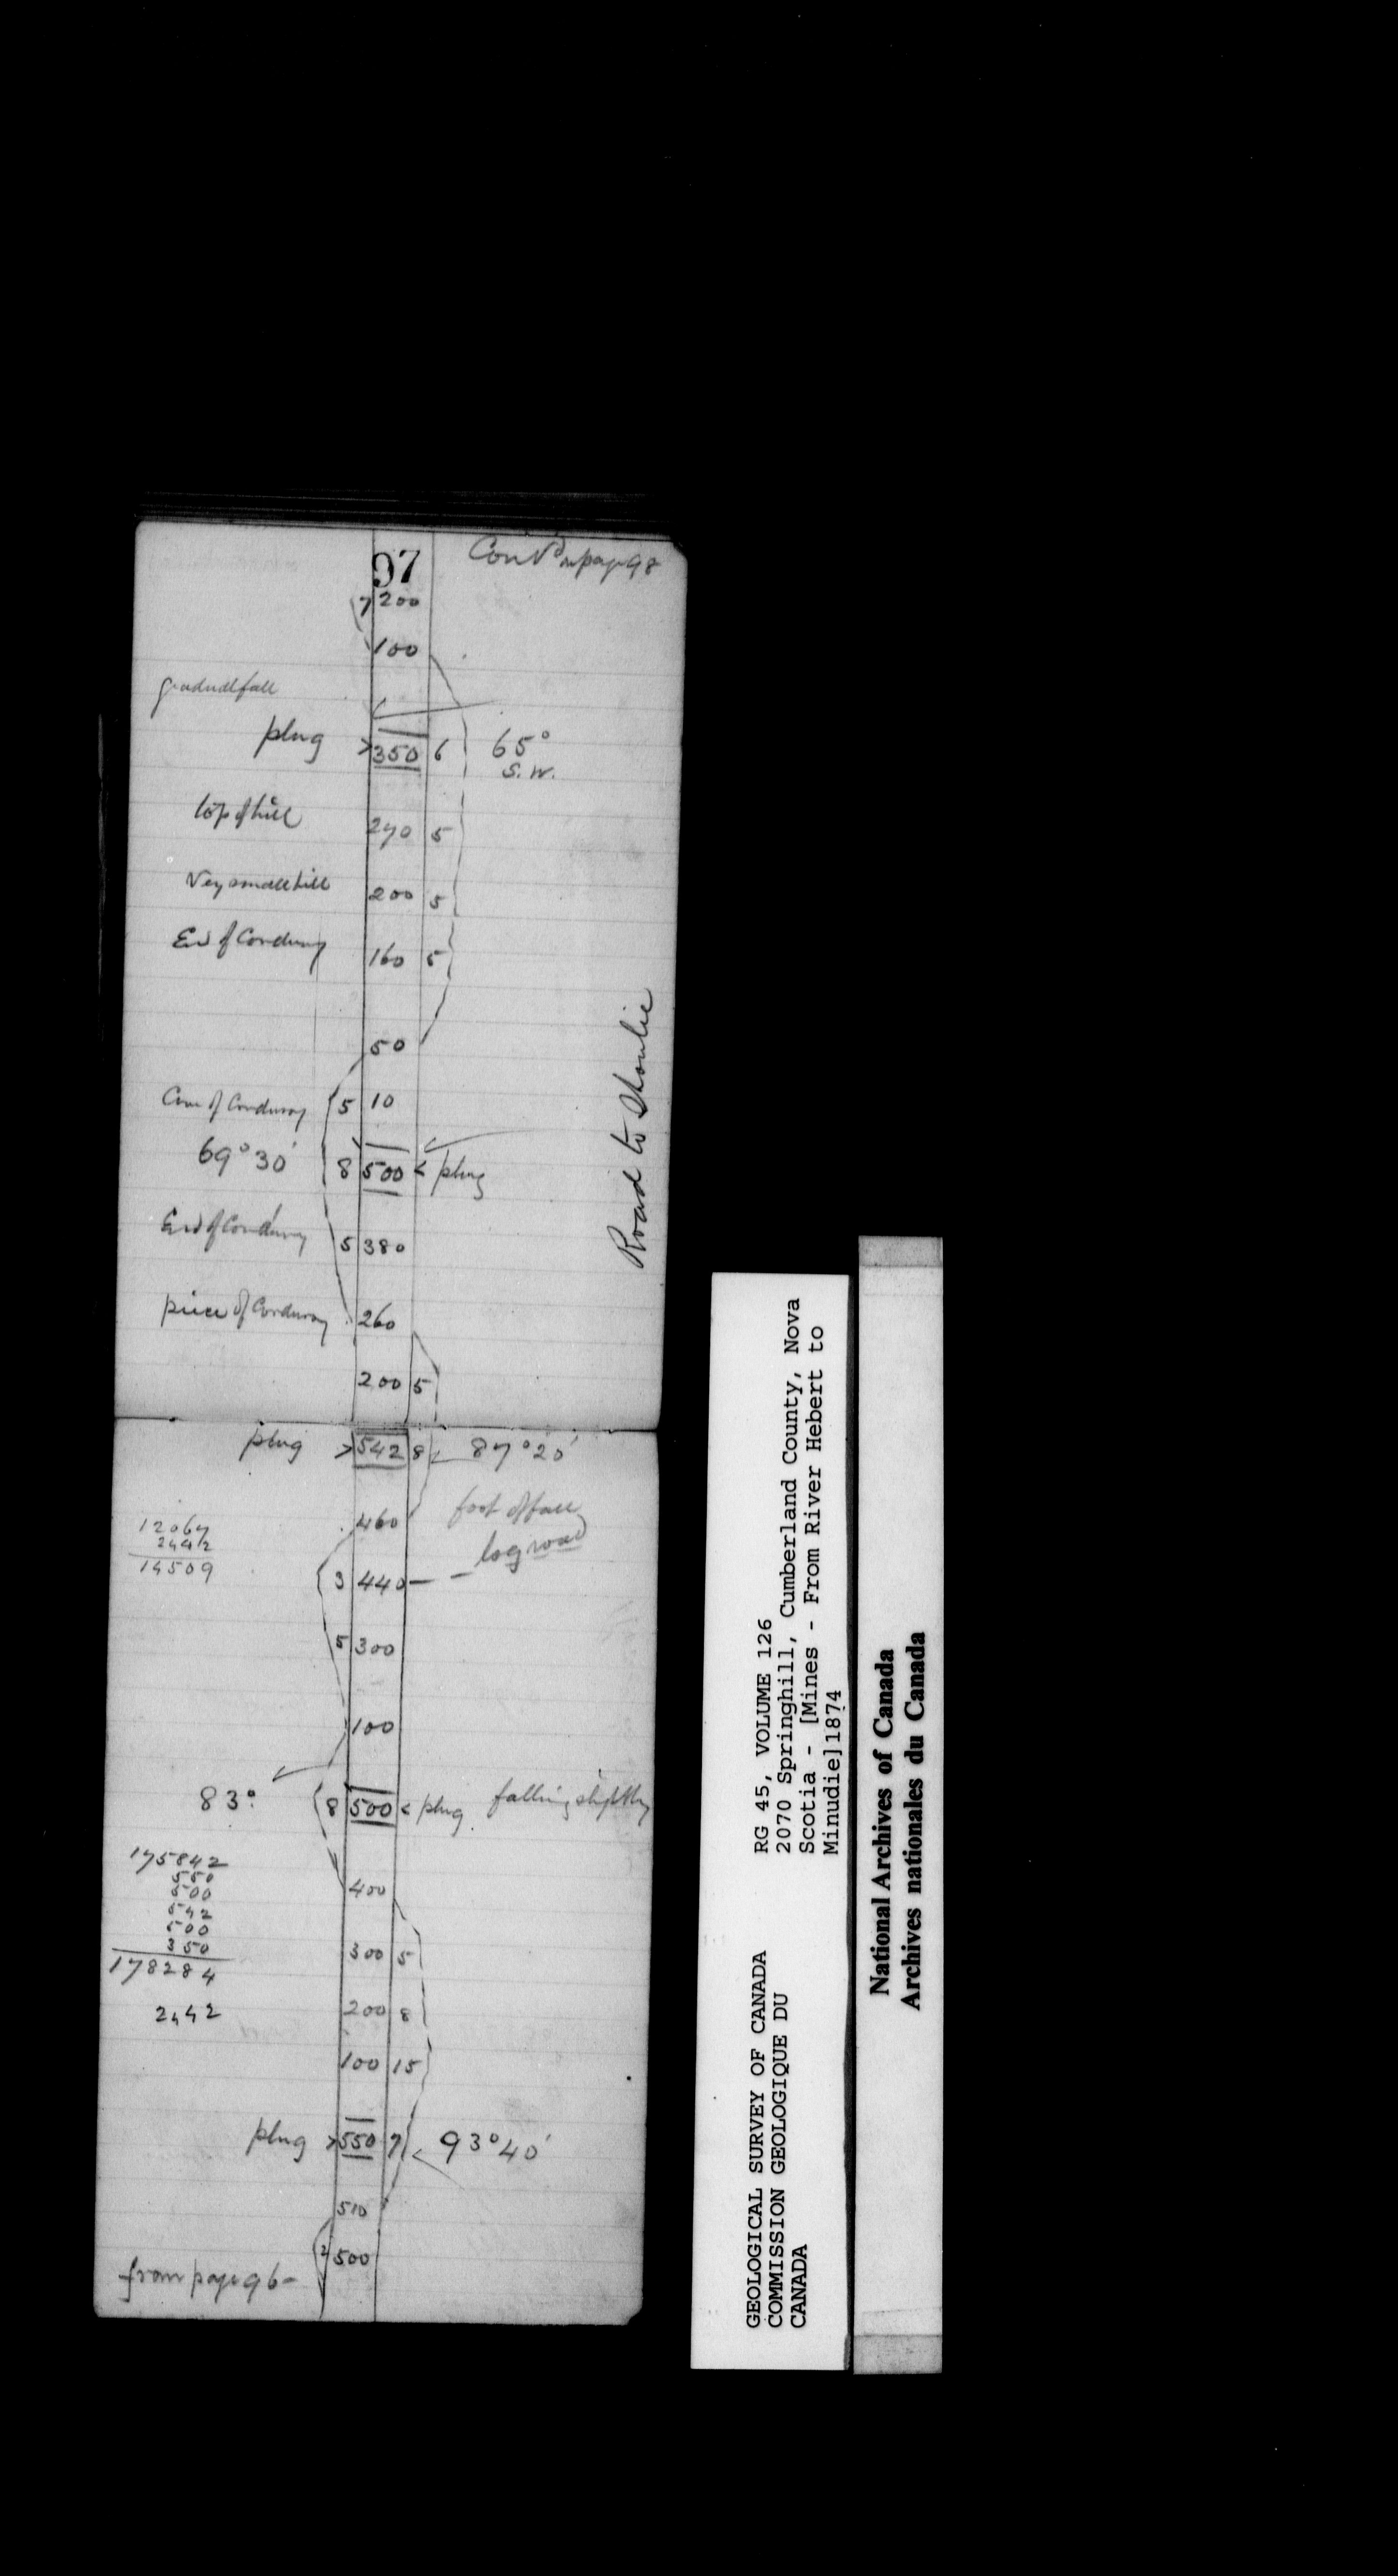 97 Cont'd on page 98
7 200
100
gradual fall
plug > 350 6 65°
S.W.
top of hill 270 5
Very small hill 200 5
End of Corduroy 160 5
50
Com of Corduroy 5 10
69° 30' 8 500 < plug
End of Corduroy 5 380
piece of Corduroy 260
200 5
Road to Shoulie
plug > 542 8 87° 20'
460 foot of fall
log road
3 440
12067
2442
14509
5 300
100
83° 8 500 < plug falling slightly
400
175842
550
500
542
500
350
178284
2442
300 5
200 8
100 15
plug > 550 7 93° 40'
510
2 500
from page 96
GEOLOGICAL SURVEY OF CANADA
COMMISSION GEOLOGIQUE DU
CANADA
RG 45, VOLUME 126
2070 Springhill, Cumberland County, Nova
Scotia - [Mines - From River Hebert to
Minudie]1874
National Archives of Canada
Archives nationales du Canada